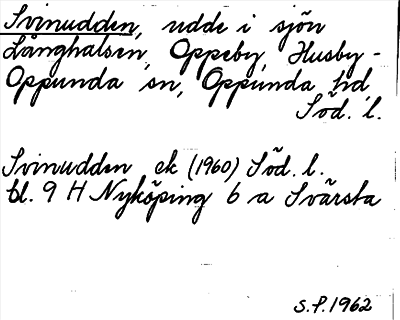 Svinudden, udde i sjön
Långhalsen, Oppeby, Husby-
Oppunda sn, Oppunda hd
Söd. l.
Svinudden ek (1960) Söd. l.
bl. 9 H Nyköping 6 a Svärsta
S.P. 1962